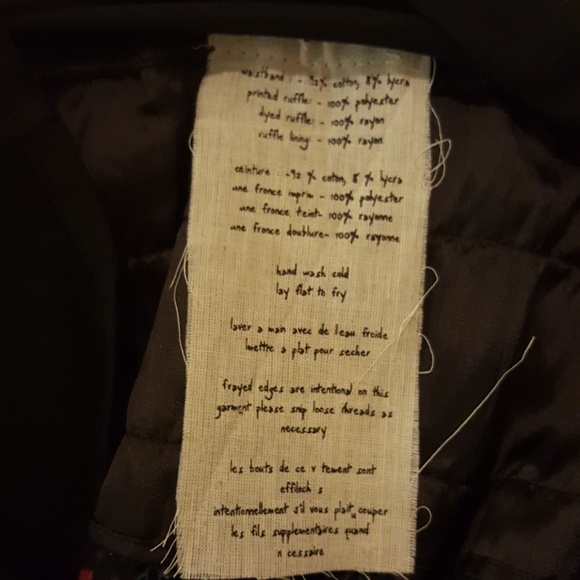 waistband : - 92% cotton, 8% lycra
printed ruffle: - 100% polyester
dyed ruffle: - 100% rayon
ruffle lining: - 100% rayon
ceinture -92 % coton, 8 % lycra
une fronce imprim - 100% polyester
une fronce teint- 100% rayonne
une fronce doublure- 100% rayonne
hand wash cold
lay flat to fry
laver a main avec de leau froide
mettre a plat pour secher
frayed edges are intentional on this
garment please snip loose threads as
necessary
les bouts de ce v tement sont
effiloch s
intentionnellement s'il vous plait, couper
les fils supplementaires quand
n cessaire